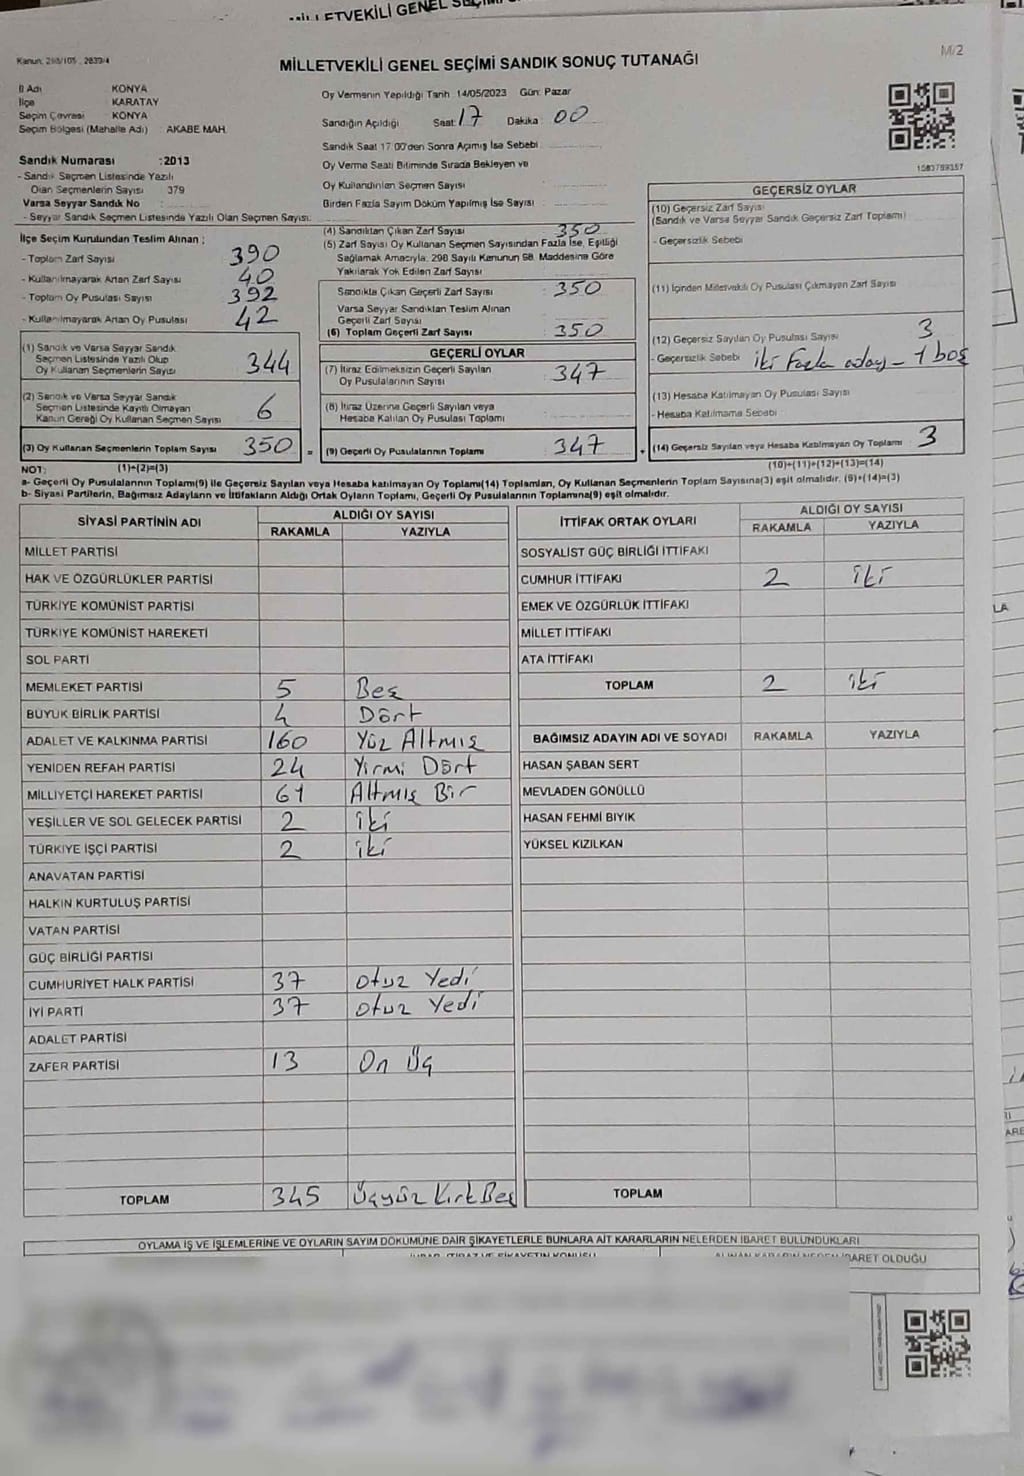 MİLLETVEKİLİ GENEL
Kanun: 298/105 , 2839/4
M/2
MİLLETVEKİLİ GENEL SEÇİMİ SANDIK SONUÇ TUTANAĞI
İl Adı KONYA
İlçe KARATAY
Seçim Çevresi KONYA
Seçim Bölgesi (Mahalle Adı) AKABE MAH.
Sandık Numarası :2013
- Sandık Seçmen Listesinde Yazılı
Olan Seçmenlerin Sayısı 379
Varsa Seyyar Sandık No :
- Seyyar Sandık Seçmen Listesinde Yazılı Olan Seçmen Sayısı:
Oy Vermenin Yapıldığı Tarih 14/05/2023 Gün: Pazar
Sandığın Açıldığı Saat: 17 Dakika: 00
Sandık Saat 17.00'den Sonra Açımış İse Sebebi
Oy Verme Saati Bitiminde Sırada Bekleyen ve
Oy Kullandırılan Seçmen Sayısı
Birden Fazla Sayım Döküm Yapılmış İse Sayısı
1083789357
İlçe Seçim Kurulundan Teslim Alınan ;
- Toplam Zarf Sayısı 390
- Kullanılmayarak Artan Zarf Sayısı 40
- Toplam Oy Pusulası Sayısı 392
- Kullanılmayarak Artan Oy Pusulası 42
(1) Sandık ve Varsa Seyyar Sandık
Seçmen Listesinde Yazılı Olup
Oy Kullanan Seçmenlerin Sayısı 344
(2) Sandık ve Varsa Seyyar Sandık
Seçmen Listesinde Kayıtlı Olmayan
Kanun Gereği Oy Kullanan Seçmen Sayısı 6
(3) Oy Kullanan Seçmenlerin Toplam Sayısı 350 =
(4) Sandıktan Çıkan Zarf Sayısı 350
(5) Zarf Sayısı Oy Kullanan Seçmen Sayısından Fazla İse, Eşitliği
Sağlamak Amacıyla; 298 Sayılı Kanunun 98. Maddesine Göre
Yakılarak Yok Edilen Zarf Sayısı
Sandıkta Çıkan Geçerli Zarf Sayısı 350
Varsa Seyyar Sandıktan Teslim Alınan
Geçerli Zarf Sayısı
(6) Toplam Geçerli Zarf Sayısı 350
GEÇERLİ OYLAR
(7) İtiraz Edilmeksizin Geçerli Sayılan
Oy Pusulalarının Sayısı 347
(8) İtiraz Üzerine Geçerli Sayılan veya
Hesaba Katılan Oy Pusulası Toplamı
(9) Geçerli Oy Pusulalarının Toplamı 347 +
GEÇERSİZ OYLAR
(10) Geçersiz Zarf Sayısı
(Sandık ve Varsa Seyyar Sandık Geçersiz Zarf Toplamı)
- Geçersizlik Sebebi
(11) İçinden Milletvekili Oy Pusulası Çıkmayan Zarf Sayısı
(12) Geçersiz Sayılan Oy Pusulası Sayısı 3
- Geçersizlik Sebebi iki Fazla aday - 1 boş
(13) Hesaba Katılmayan Oy Pusulası Sayısı
- Hesaba Katılmama Sebebi
(14) Geçersiz Sayılan veya Hesaba Katılmayan Oy Toplamı 3
NOT: (1)+(2)=(3)
(10)+(11)+(12)+(13)=(14)
a- Geçerli Oy Pusulalarının Toplamı(9) ile Geçersiz Sayılan veya Hesaba katılmayan Oy Toplamı(14) Toplamları, Oy Kullanan Seçmenlerin Toplam Sayısına(3) eşit olmalıdır. (9)+(14)=(3)
b- Siyasi Partilerin, Bağımsız Adayların ve İttifakların Aldığı Ortak Oyların Toplamı, Geçerli Oy Pusulalarının Toplamına(9) eşit olmalıdır.
SİYASİ PARTİNİN ADI ALDIĞI OY SAYISI
RAKAMLA YAZIYLA
MİLLET PARTİSİ
HAK VE ÖZGÜRLÜKLER PARTİSİ
TÜRKİYE KOMÜNİST PARTİSİ
TÜRKİYE KOMÜNİST HAREKETİ
SOL PARTİ
MEMLEKET PARTİSİ 5 Beş
BÜYÜK BİRLİK PARTİSİ 4 Dört
ADALET VE KALKINMA PARTİSİ 160 Yüz Altmış
YENİDEN REFAH PARTİSİ 24 Yirmi Dört
MİLLİYETÇİ HAREKET PARTİSİ 61 Altmış Bir
YEŞİLLER VE SOL GELECEK PARTİSİ 2 iki
TÜRKİYE İŞÇİ PARTİSİ 2 iki
ANAVATAN PARTİSİ
HALKIN KURTULUŞ PARTİSİ
VATAN PARTİSİ
GÜÇ BİRLİĞİ PARTİSİ
CUMHURİYET HALK PARTİSİ 37 Otuz Yedi
İYİ PARTİ 37 Otuz Yedi
ADALET PARTİSİ
ZAFER PARTİSİ 13 On Üç
TOPLAM 345 Üçyüz Kırk Beş
İTTİFAK ORTAK OYLARI ALDIĞI OY SAYISI
RAKAMLA YAZIYLA
SOSYALİST GÜÇ BİRLİĞİ İTTİFAKI
CUMHUR İTTİFAKI 2 iki
EMEK VE ÖZGÜRLÜK İTTİFAKI
MİLLET İTTİFAKI
ATA İTTİFAKI
TOPLAM 2 iki
BAĞIMSIZ ADAYIN ADI VE SOYADI RAKAMLA YAZIYLA
HASAN ŞABAN SERT
MEVLADEN GÖNÜLLÜ
HASAN FEHMİ BIYIK
YÜKSEL KIZILKAN
TOPLAM
OYLAMA İŞ VE İŞLEMLERİNE VE OYLARIN SAYIM DÖKÜMÜNE DAİR ŞİKAYETLERLE BUNLARA AİT KARARLARIN NELERDEN İBARET BULUNDUKLARI
İBARET OLDUĞU